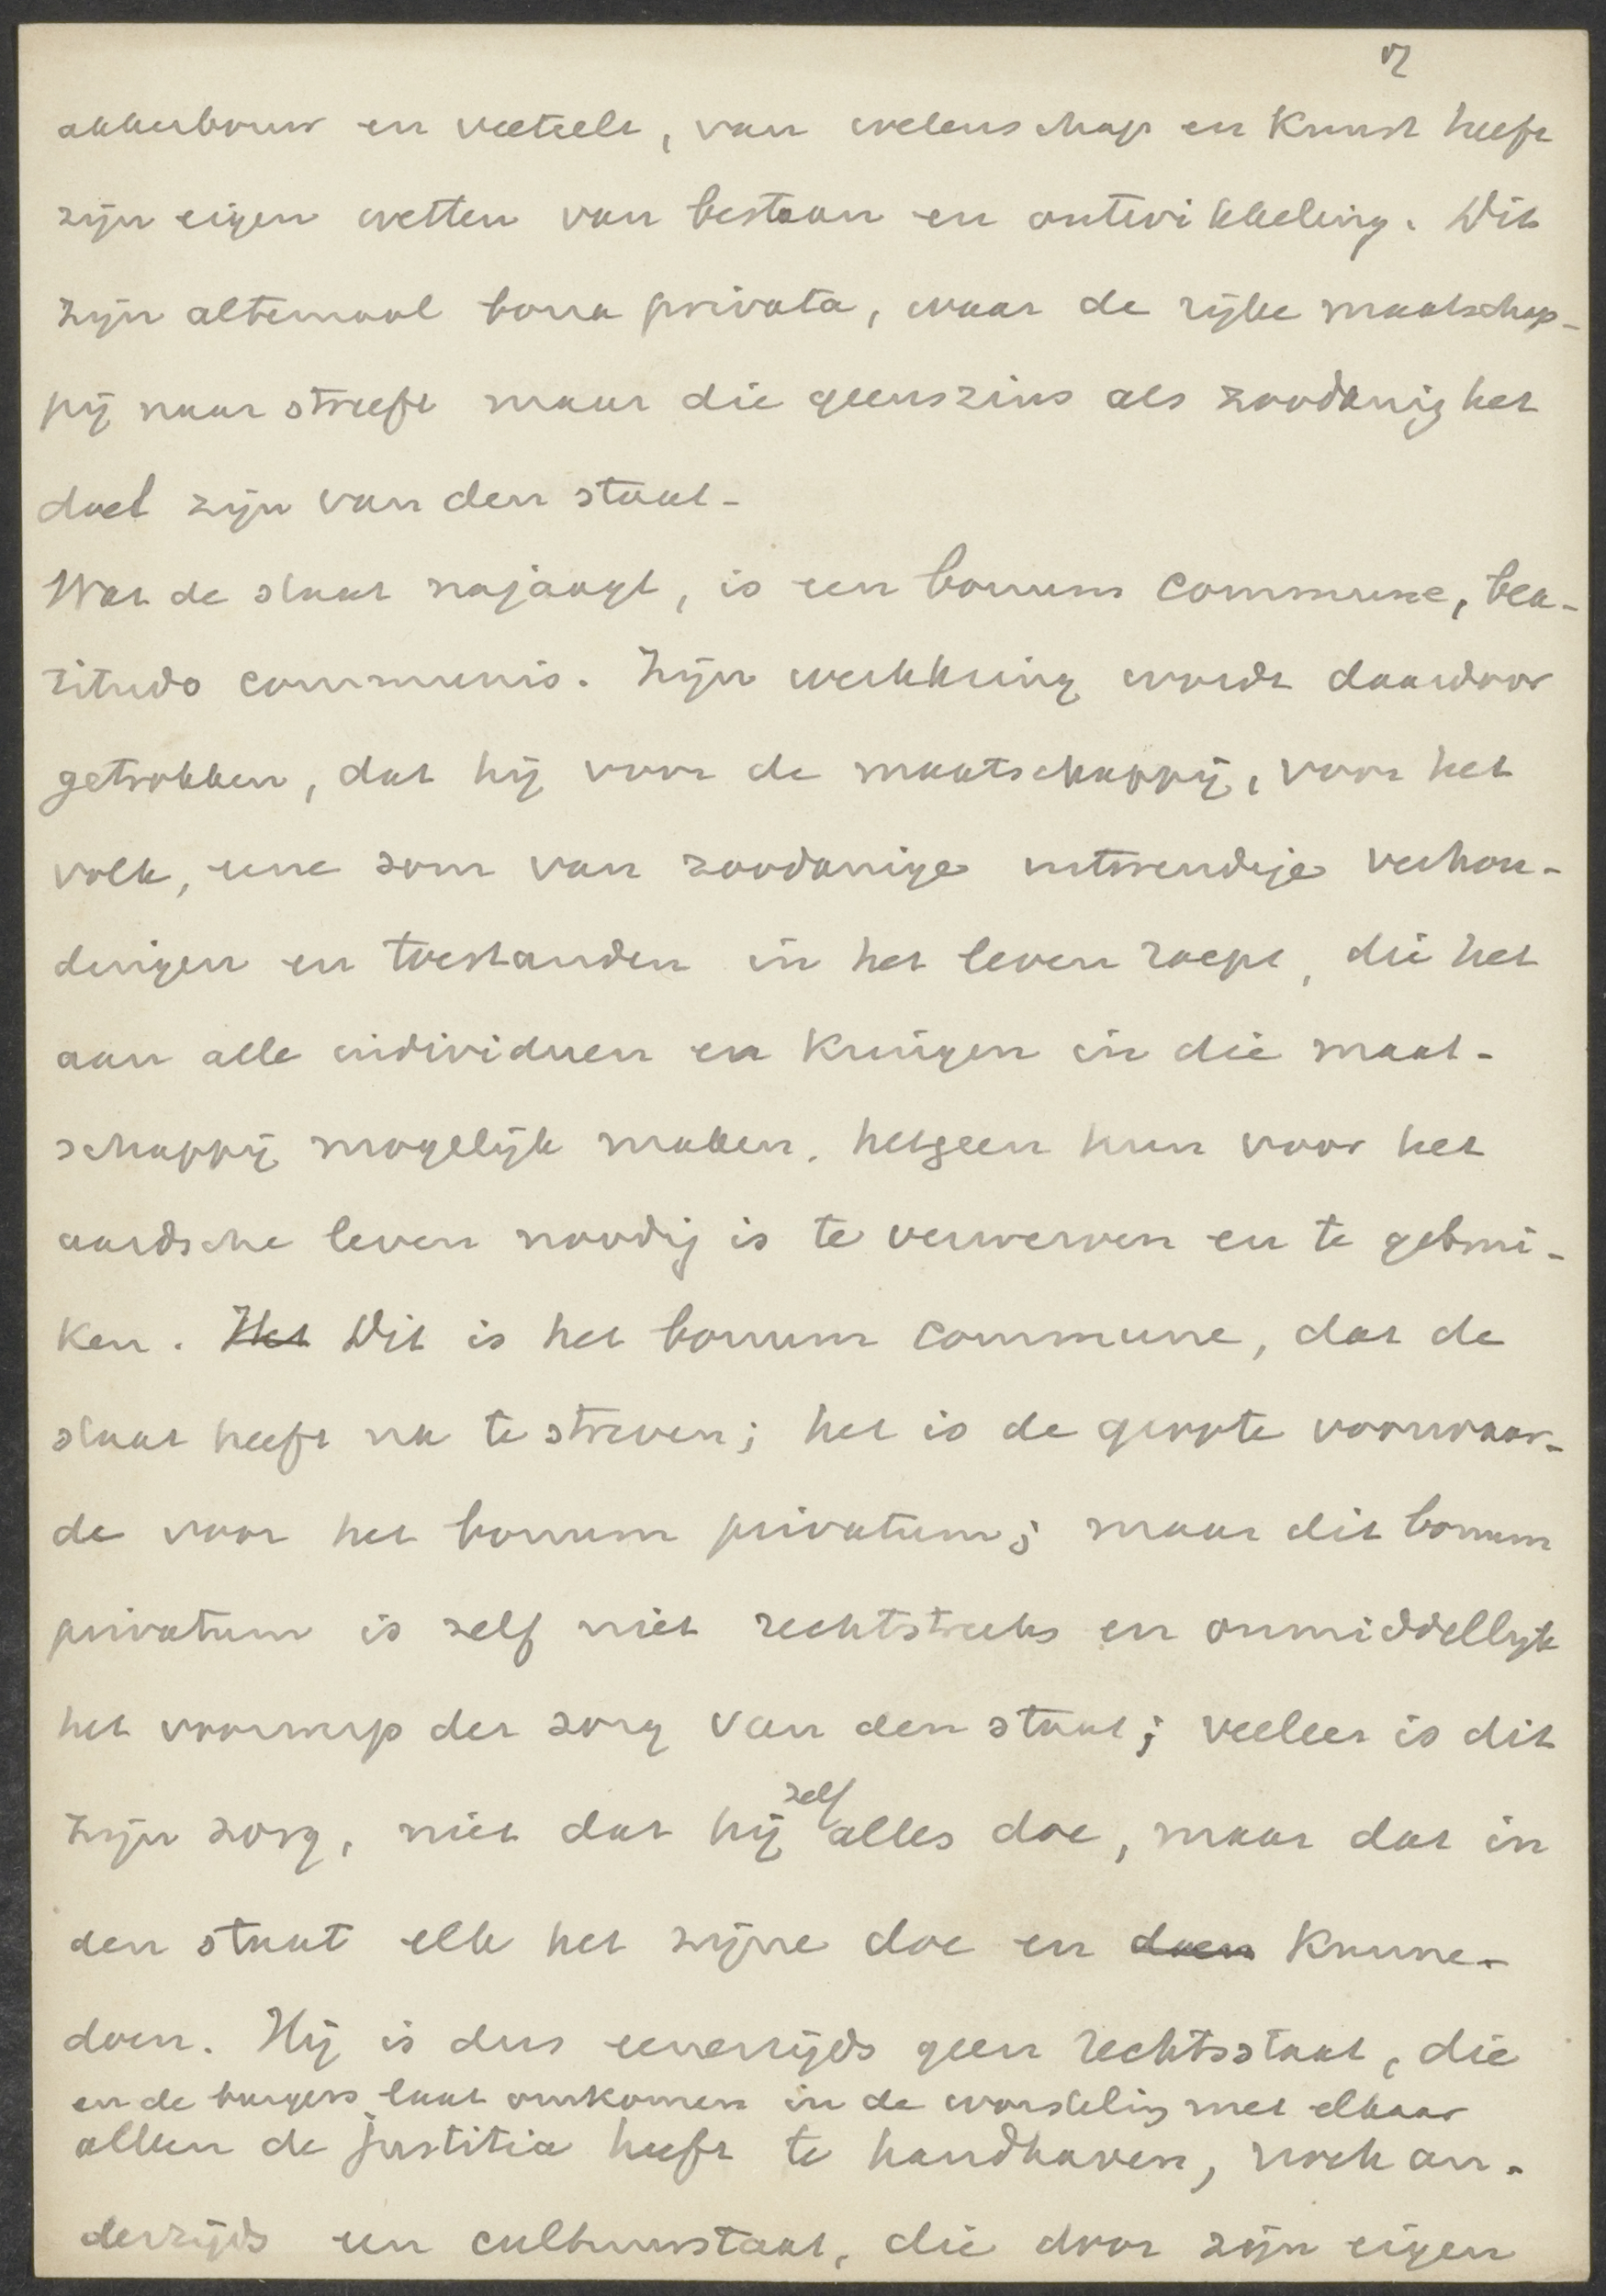 akkerbouw en veeteelt, van wetenschap en kunst heeft
zijn eigen wetten van bestaan en ontwikkeling. Dit
zijn altemaal bona privata, waar de rijke maatschap-
pij naar streeft maar die geenszins als zoodanig het
doel zijn van den staat.
Wat de staat najaagt, is een bonum commune, bea-
titudo communis. Zijn werkkring wordt daardoor
getrokken, dat hij voor de maatschappij, voor het
volk, eene som van zoodanige uitwendige verhou-
dingen en toestanden in het leven roept, die het
aan alle individuen en kringen in die maat-
schappij mogelijk maken, hetgeen hun voor het
aardsche leven noodig is te verwerven en te gebrui-
ken. Het Dit is het bonum commune, dat de
staat heeft na te streven; het is de groote voorwaar-
de voor het bonum privatum; maar dit bonum
privatum is zelf niet rechtstreeks en onmiddellijk
het voorwerp der zorg van den staat; veeleer is dit
zelf
zijn zorg, niet dat hij alles doe, maar dat in
den staat elk het zijne doe en doen kunne
doen. Hij is dus eenerzijds geen rechtsstaat, die
en de burgers laat omkomen in de worsteling met elkaar
alleen de justitia heeft te handhaven, noch an-
derzijds een cultuurstaat, die door zijn eigen